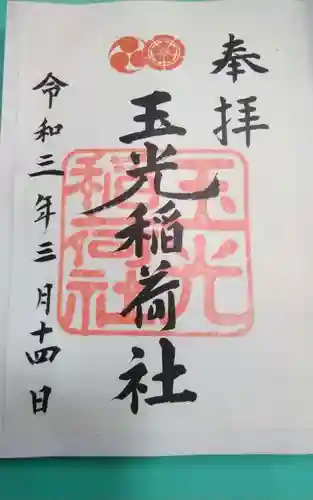 奉拝
玉光稲荷社
令和三年三月十四日
玉光
稲荷社